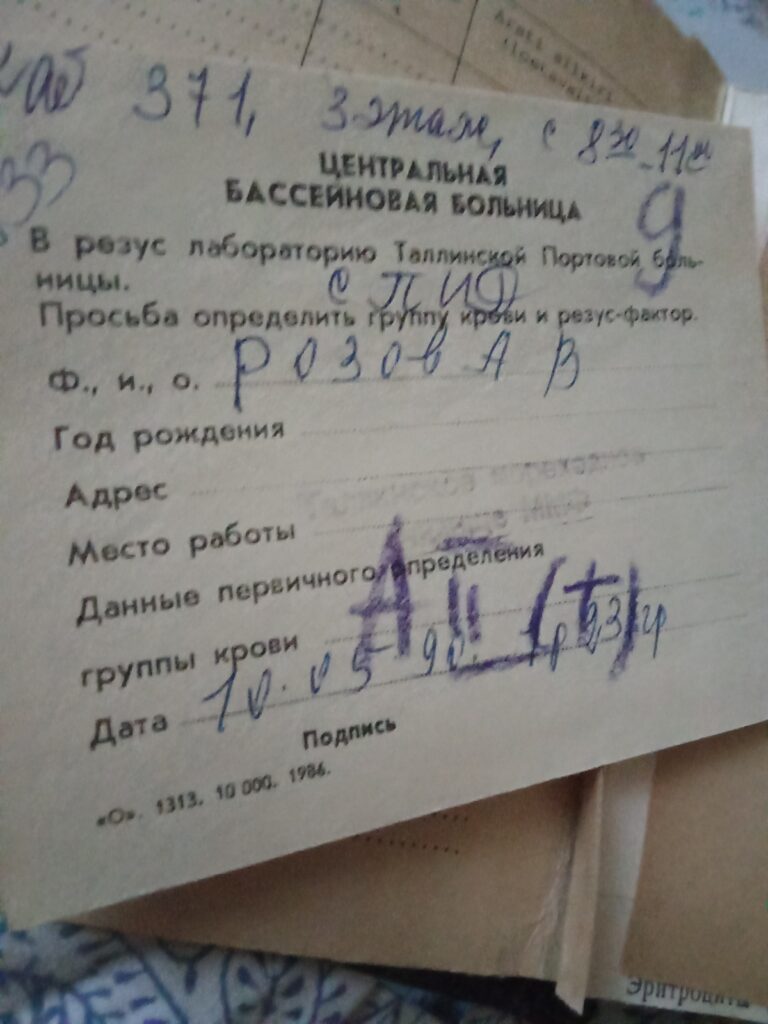 каб 371, 3 этаж, с 8 30 - 11 00
33
ЦЕНТРАЛЬНАЯ
БАССЕЙНОВАЯ БОЛЬНИЦА
9
В резус лабораторию Таллинской Портовой боль-
ницы.
СПИД
Просьба определить группу крови и резус-фактор.
Ф., и., о. Розов А В
Год рождения
Адрес
Место работы
Данные первичного определения
группы крови А II (+)
Дата 10.05 90.
Подпись
«О». 1313. 10 000. 1986.
Эритроциты